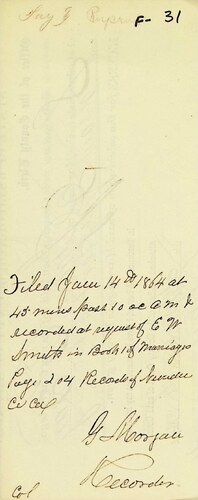 F- 31
Filed June 14th 1864 at
45 mins past 10 oc A M &
recorded at request of E W
Smith in Book 1 of Marriages
Page 204 Records of
Co Cal
G Morgan
Recorder
Col